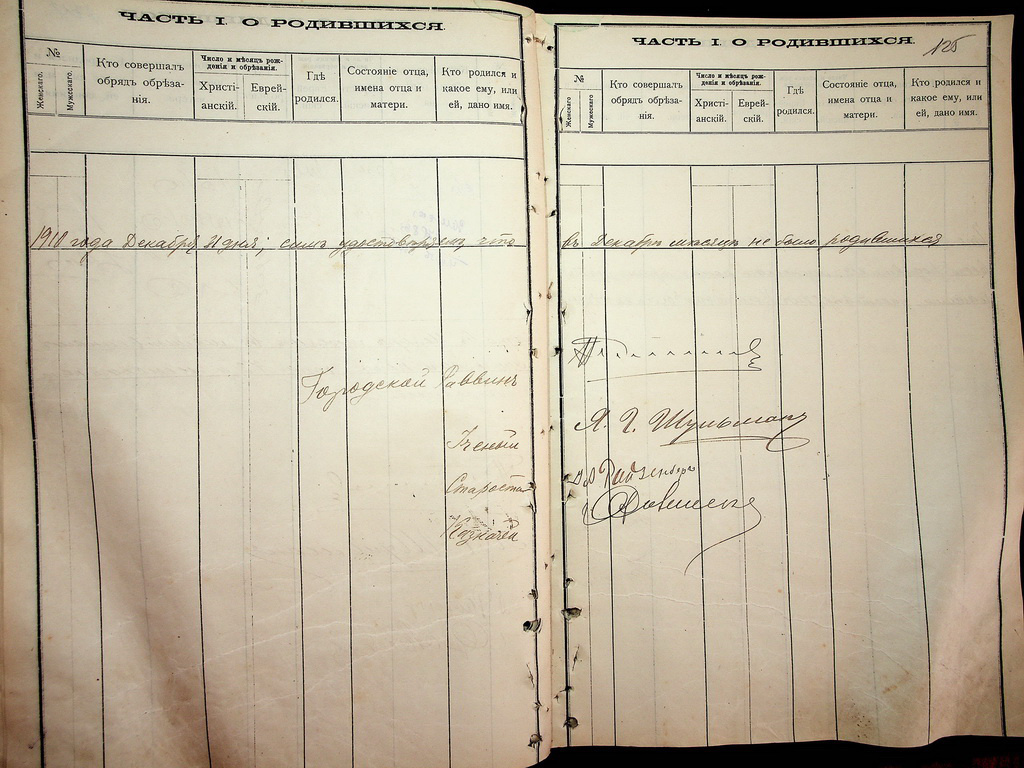 ЧАСТЬ I. О РОДИВШИХСЯ.
№
Женскаго.
Мужескаго.
Кто совершалъ
обрядъ обрѣза-
нія.
Число и мѣсяцъ рож-
денія и обрѣзанія.
Христі-
анскій.
Еврей-
скій.
Гдѣ
родился.
Состояніе отца,
имена отца и
матери.
Кто родился и
какое ему, или
ей, дано имя.
1910 года Декабря 31 дня; симъ удостовѣряемъ что
Городской Раввинъ
Ученый
Староста
Казначей
ЧАСТЬ I. О РОДИВШИХСЯ.
125
№
Женскаго
Мужескаго
Кто совершалъ
обрядъ обрѣза-
нія.
Число и мѣсяцъ рож-
денія и обрѣзанія.
Христі-
анскій.
Еврей-
скій.
Гдѣ
родился.
Состояніе отца,
имена отца и
матери.
Кто родился и
какое ему, или
ей, дано имя.
въ Декабрѣ мѣсяцѣ не было родившихся
Я. Г. Шульманъ